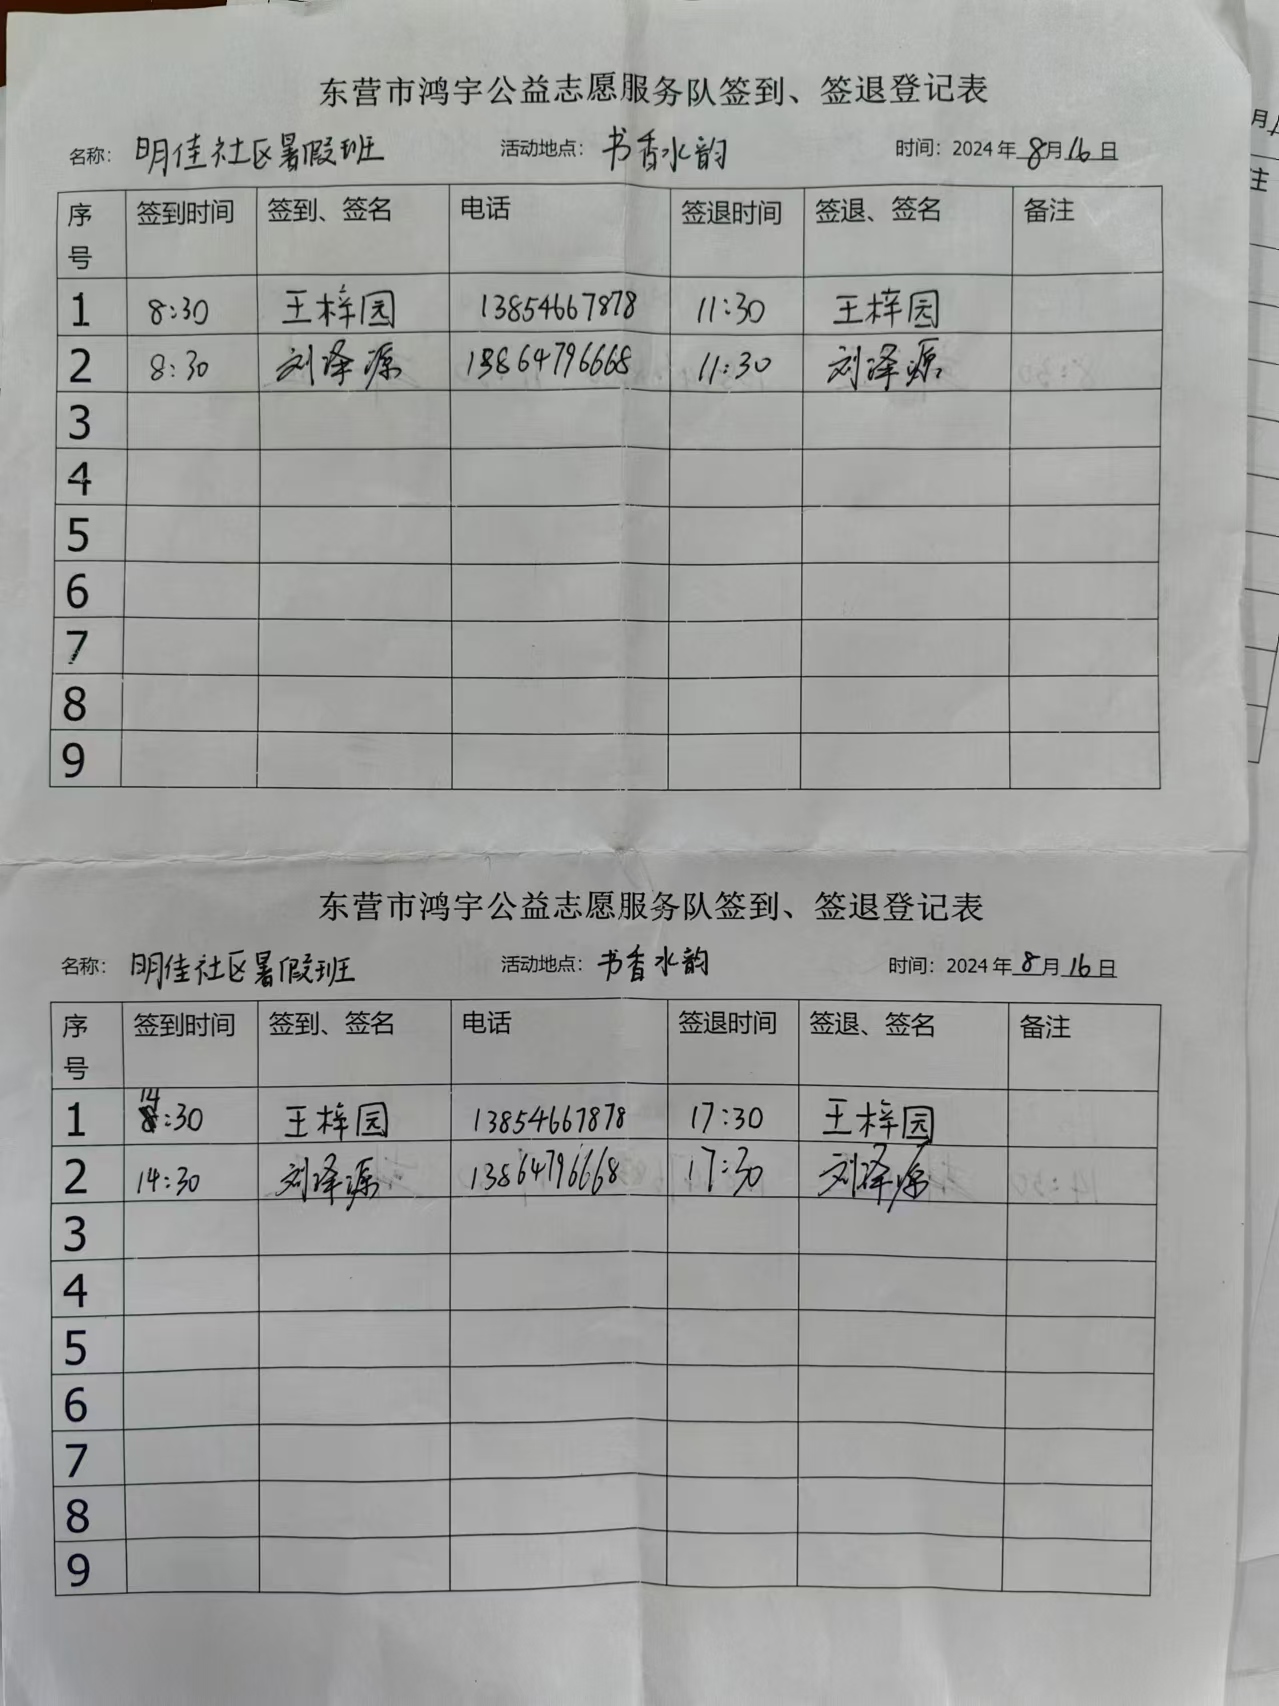 东营市鸿宇公益志愿服务队签到、签退登记表
名称： 明佳社区暑假班 活动地点： 书香水韵 时间：2024年8月16日
序号 签到时间 签到、签名 电话 签退时间 签退、签名 备注
1 8:30 王梓园 13854667878 11:30 王梓园
2 8:30 刘泽源 13864796668 11:30 刘泽源
3
4
5
6
7
8
9
东营市鸿宇公益志愿服务队签到、签退登记表
名称： 明佳社区暑假班 活动地点： 书香水韵 时间：2024年8月16日
序号 签到时间 签到、签名 电话 签退时间 签退、签名 备注
1 14:30 王梓园 13854667878 17:30 王梓园
2 14:30 刘泽源 13864796668 17:30 刘泽源
3
4
5
6
7
8
9
月
注